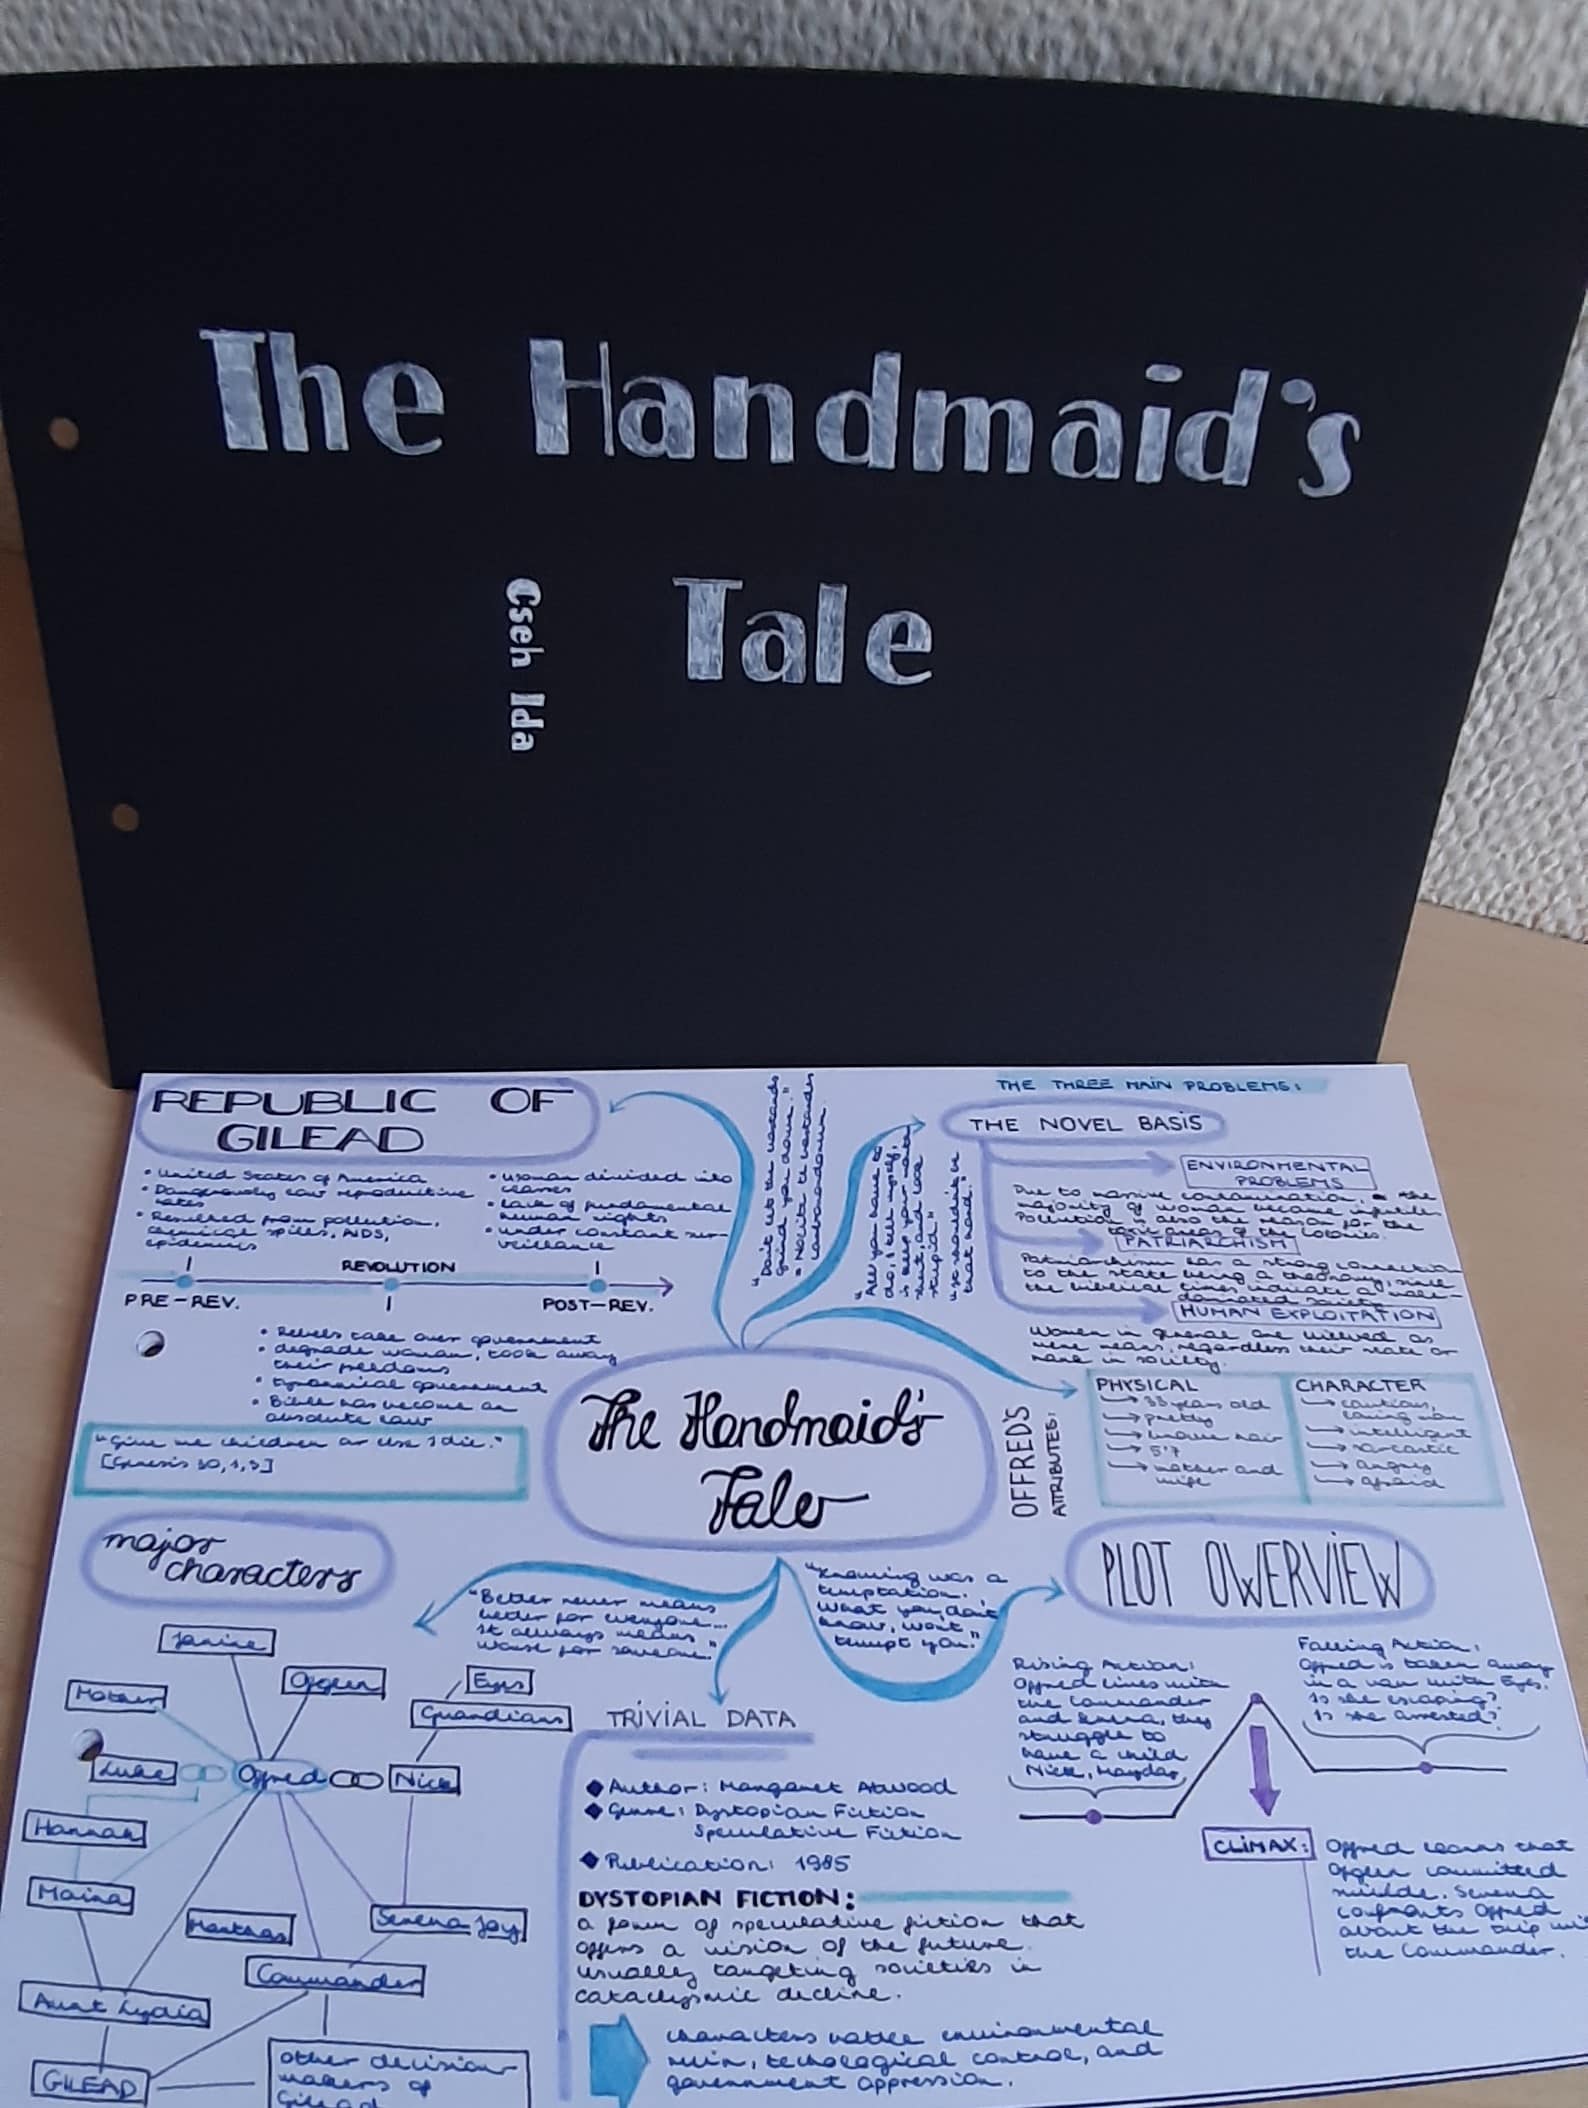 The Handmaid's
Tale
Cseh Ida
REPUBLIC OF
GILEAD
• United States of America
• Dangerously low reproductive
rates
• Resulted from pollution,
chemical spills, AIDS,
epidemics
• woman divided into
classes
• lack of fundamental
human rights
• under constant sur-
veillance
REVOLUTION
PRE-REV.
POST-REV.
• Rebels take over government
• degrade woman, took away
their freedoms
• tyrannical government
• Bible has become an
absolute law
"Give me children or else I die."
[Genesis 30,1,3]
"Don't let the bastards
grind you down."
"Nolite te bastardes
carborundorum
"All you have to
do, I tell myself,
is keep your mouth
shut, and look
stupid"
"It shouldn't be
that hard."
THE THREE MAIN PROBLEMS:
THE NOVEL BASIS
ENVIRONMENTAL
PROBLEMS
Due to massive contamination, the
majority of woman became
Pollution is also the reason for the
toxic areas of the Colonies.
PATRIARCHISM
Patriarchism has a strong connection
to the state being a theonomy, since
the biblical times indicate a male-
dominated society
HUMAN EXPLOITATION
Women in general are viewed as
mere means, regardless their state or
rank in society.
The Handmaid's
Tale
OFFRED'S
ATTRIBUTES:
PHYSICAL
→ 33 years old
→ pretty
→ brown hair
→ 5'7
→ mother and
wife
CHARACTER
→ cautious,
loving mom
→ intelligent
→ sarcastic
→ angry
→ afraid
major
characters
"Better never means
better for everyone...
It always means
worse for someone."
"Knowing was a
temptation.
What you don't
know, won't
tempt you."
PLOT OWERVIEW
Janine
Mother
Ofglen
Eyes
Guardians
Luke
Offred
Nick
Hannah
Moira
Marthas
Serena Joy
Commander
Aunt Lydia
GILEAD
other decision
makers of
Gilead
TRIVIAL DATA
◆ Author: Margaret Atwood
◆ Genre: Dystopian Fiction
Speculative Fiction
◆ Publication: 1985
DYSTOPIAN FICTION:
a form of speculative fiction that
offers a vision of the future.
usually targeting societies in
cataclysmic decline.
characters battle environmental
ruin, techological control, and
government oppression.
Rising Action:
Offred lives with
the Commander
and Serena, they
struggle to
have a child
Nick, Mayday
Falling Action:
Offred is taken away
in a van with Eyes.
Is she escaping?
Is she arrested?
CLIMAX:
Offred learns that
Ofglen committed
suicide. Serena
confronts Offred
about the trip
the Commander.